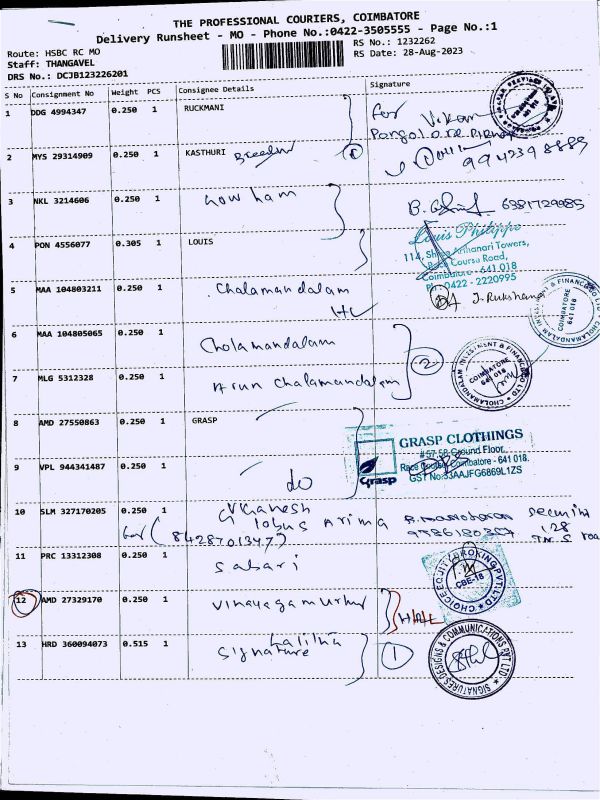 THE PROFESSIONAL COURIERS, COIMBATORE
Delivery Runsheet - MO - Phone No.:0422-3505555 - Page No.:1
Route: HSBC RC MO
RS No.: 1232262
Staff: THANGAVEL
RS Date: 28-Aug-2023
DRS No.: DCJB123226201
S No Consignment No Weight PCS Consignee Details Signature
1 DDG 4994347 0.250 1 RUCKMANI
for Vikram
2 MYS 29314909 0.250 1 KASTHURI
9942398889
3 NKL 3214606 0.250 1 Gowtham
6381729985
4 PON 4556077 0.305 1 LOUIS
Louis Philippe
114, Shree Arihanari Towers,
Race Course Road,
Coimbatore - 641 018
Ph: 0422 - 2220995
5 MAA 104803211 0.250 1 Cholamandalam
J. Rukshana
6 MAA 104805065 0.250 1 Cholamandalam
2
7 MLG 5312328 0.250 1 Arun Cholamandalam
8 AMD 27550863 0.250 1 GRASP
GRASP CLOTHINGS
# 57,58 Ground Floor,
Race Course, Coimbatore - 641 018.
GST No:33AAJFG6869L1ZS
Grasp
9 VPL 944341487 0.250 1 do
10 SLM 327170205 0.250 1 VKGanesh
Globus Arima
(8428701347)
11 PRC 13312308 0.250 1 Sabari
CHOICE EQUITY BROKING PVT LTD
CBE-18
12 AMD 27329170 0.250 1 Vinayagamurthy
13 HRD 360094073 0.515 1 Lalitha
Signature
1
SIGNATURES DESIGNS & COMMUNICATIONS PVT LTD